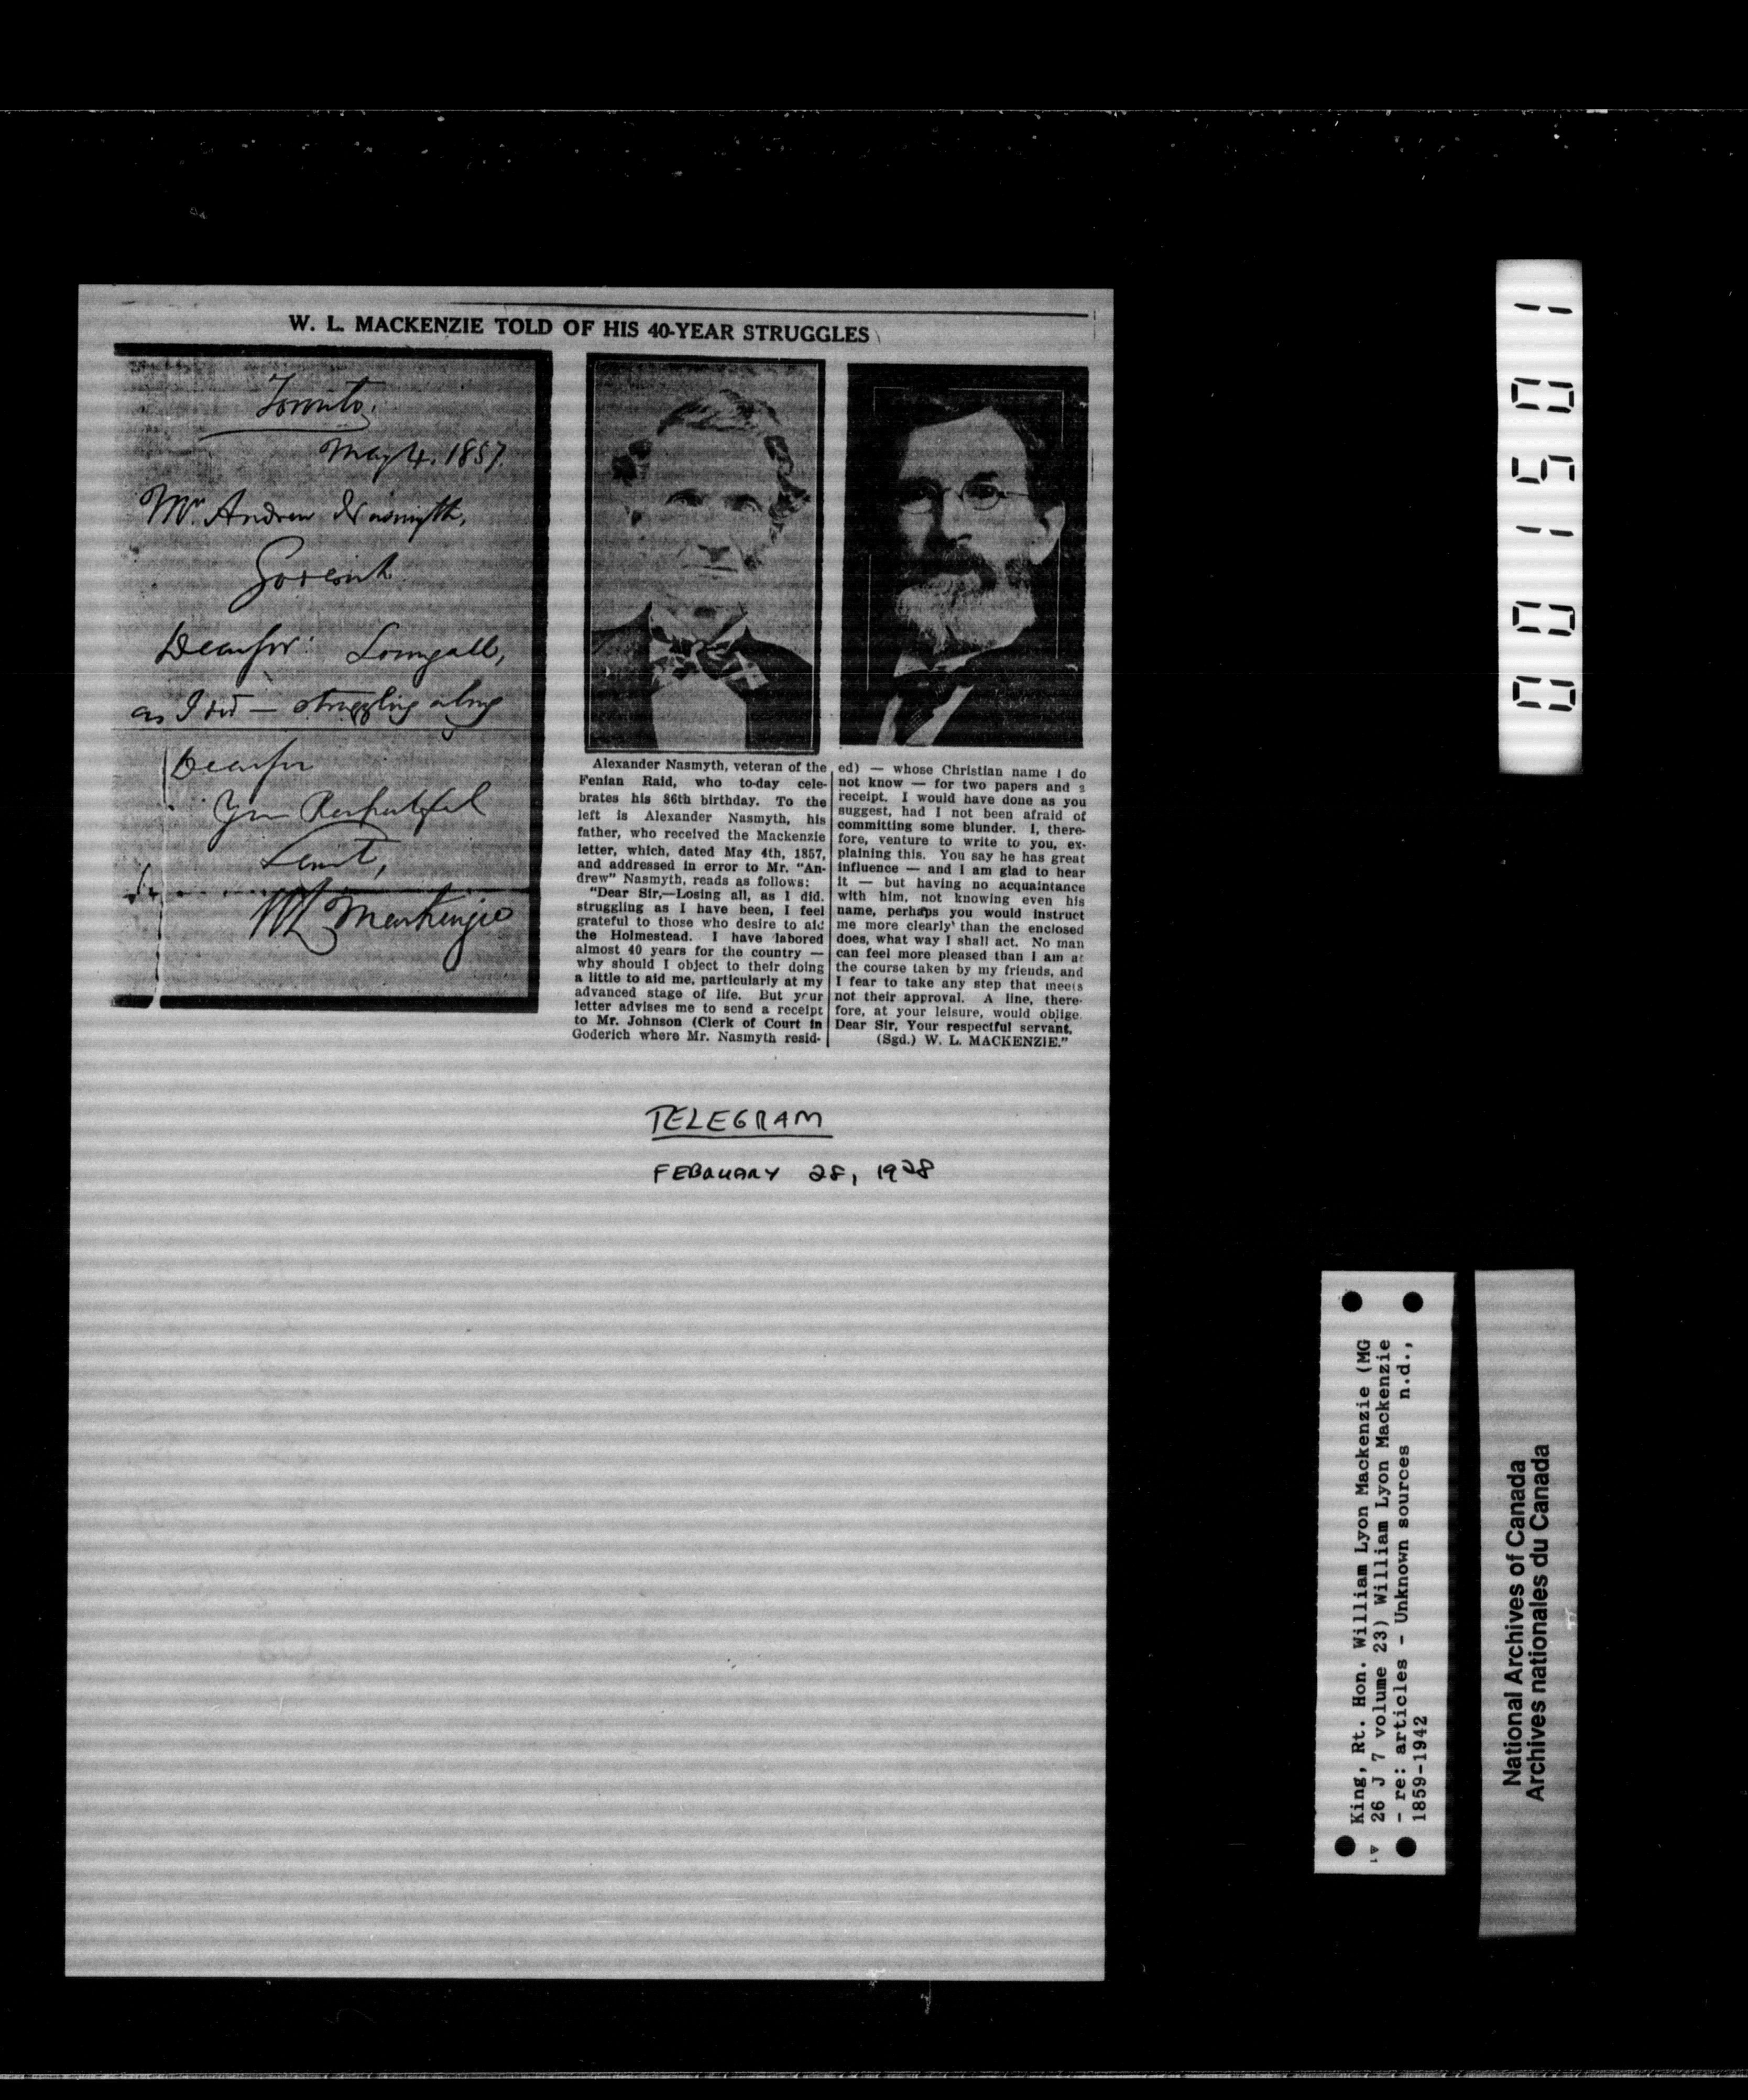 W. L. MACKENZIE TOLD OF HIS 40-YEAR STRUGGLES
Toronto,
May 4. 1857.
Mr. Andrew Nasmyth,
Goderich
Dear Sir: Losing all,
as I did — struggling along
Dear Sir
Your Respectful
Servt,
W L Mackenzie
Alexander Nasmyth, veteran of the
Fenian Raid, who to-day cele-
brates his 86th birthday. To the
left is Alexander Nasmyth, his
father, who received the Mackenzie
letter, which, dated May 4th, 1857,
and addressed in error to Mr. "An-
drew" Nasmyth, reads as follows:
"Dear Sir,—Losing all, as I did,
struggling as I have been, I feel
grateful to those who desire to aid
the Holmestead. I have labored
almost 40 years for the country —
why should I object to their doing
a little to aid me, particularly at my
advanced stage of life. But your
letter advises me to send a receipt
to Mr. Johnson (Clerk of Court in
Goderich where Mr. Nasmyth resid-
ed) — whose Christian name I do
not know — for two papers and a
receipt. I would have done as you
suggest, had I not been afraid of
committing some blunder. I, there-
fore, venture to write to you, ex-
plaining this. You say he has great
influence — and I am glad to hear
it — but having no acquaintance
with him, not knowing even his
name, perhaps you would instruct
me more clearly than the enclosed
does, what way I shall act. No man
can feel more pleased than I am at
the course taken by my friends, and
I fear to take any step that meets
not their approval. A line, there-
fore, at your leisure, would oblige.
Dear Sir, Your respectful servant,
(Sgd.) W. L. MACKENZIE."
TELEGRAM
FEBRUARY 28, 1928
001501
King, Rt. Hon. William Lyon Mackenzie (MG
26 J 7 volume 23) William Lyon Mackenzie
- re: articles - Unknown sources n.d.,
1859-1942
National Archives of Canada
Archives nationales du Canada